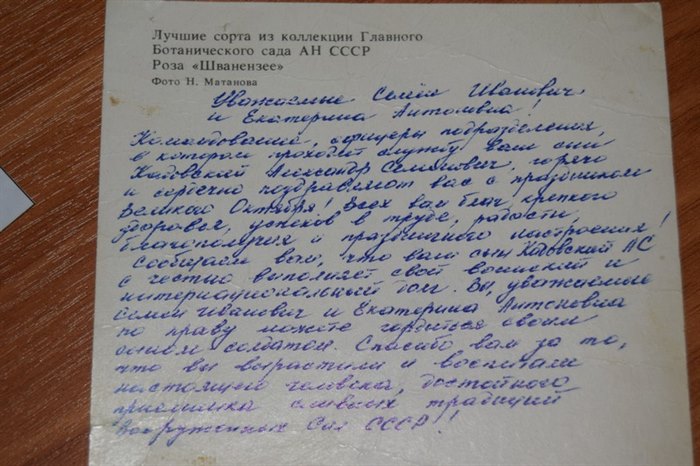 Лучшие сорта из коллекции Главного
Ботанического сада АН СССР
Роза «Шванензее»
Фото Н. Матанова
Уважаемые Семён Иванович
и Екатерина Антоновна!
Командование, офицеры подразделения,
в котором проходит службу Ваш сын
Александр Семёнович, горячо
и сердечно поздравляют вас с праздником
Великого Октября! Всех вам благ, крепкого
здоровья, успехов в труде, радости,
благополучия и праздничного настроения!
Сообщаем вам, что ваш сын АС
с честью выполняет свой воинский и
интернациональный долг. Вы, уважаемые
Семён Иванович и Екатерина Антоновна
по праву можете гордиться своим
сыном солдатом. Спасибо вам за то,
что вы вырастили и воспитали
настоящего человека, достойного
приемника славных традиций
Вооруженных Сил СССР!